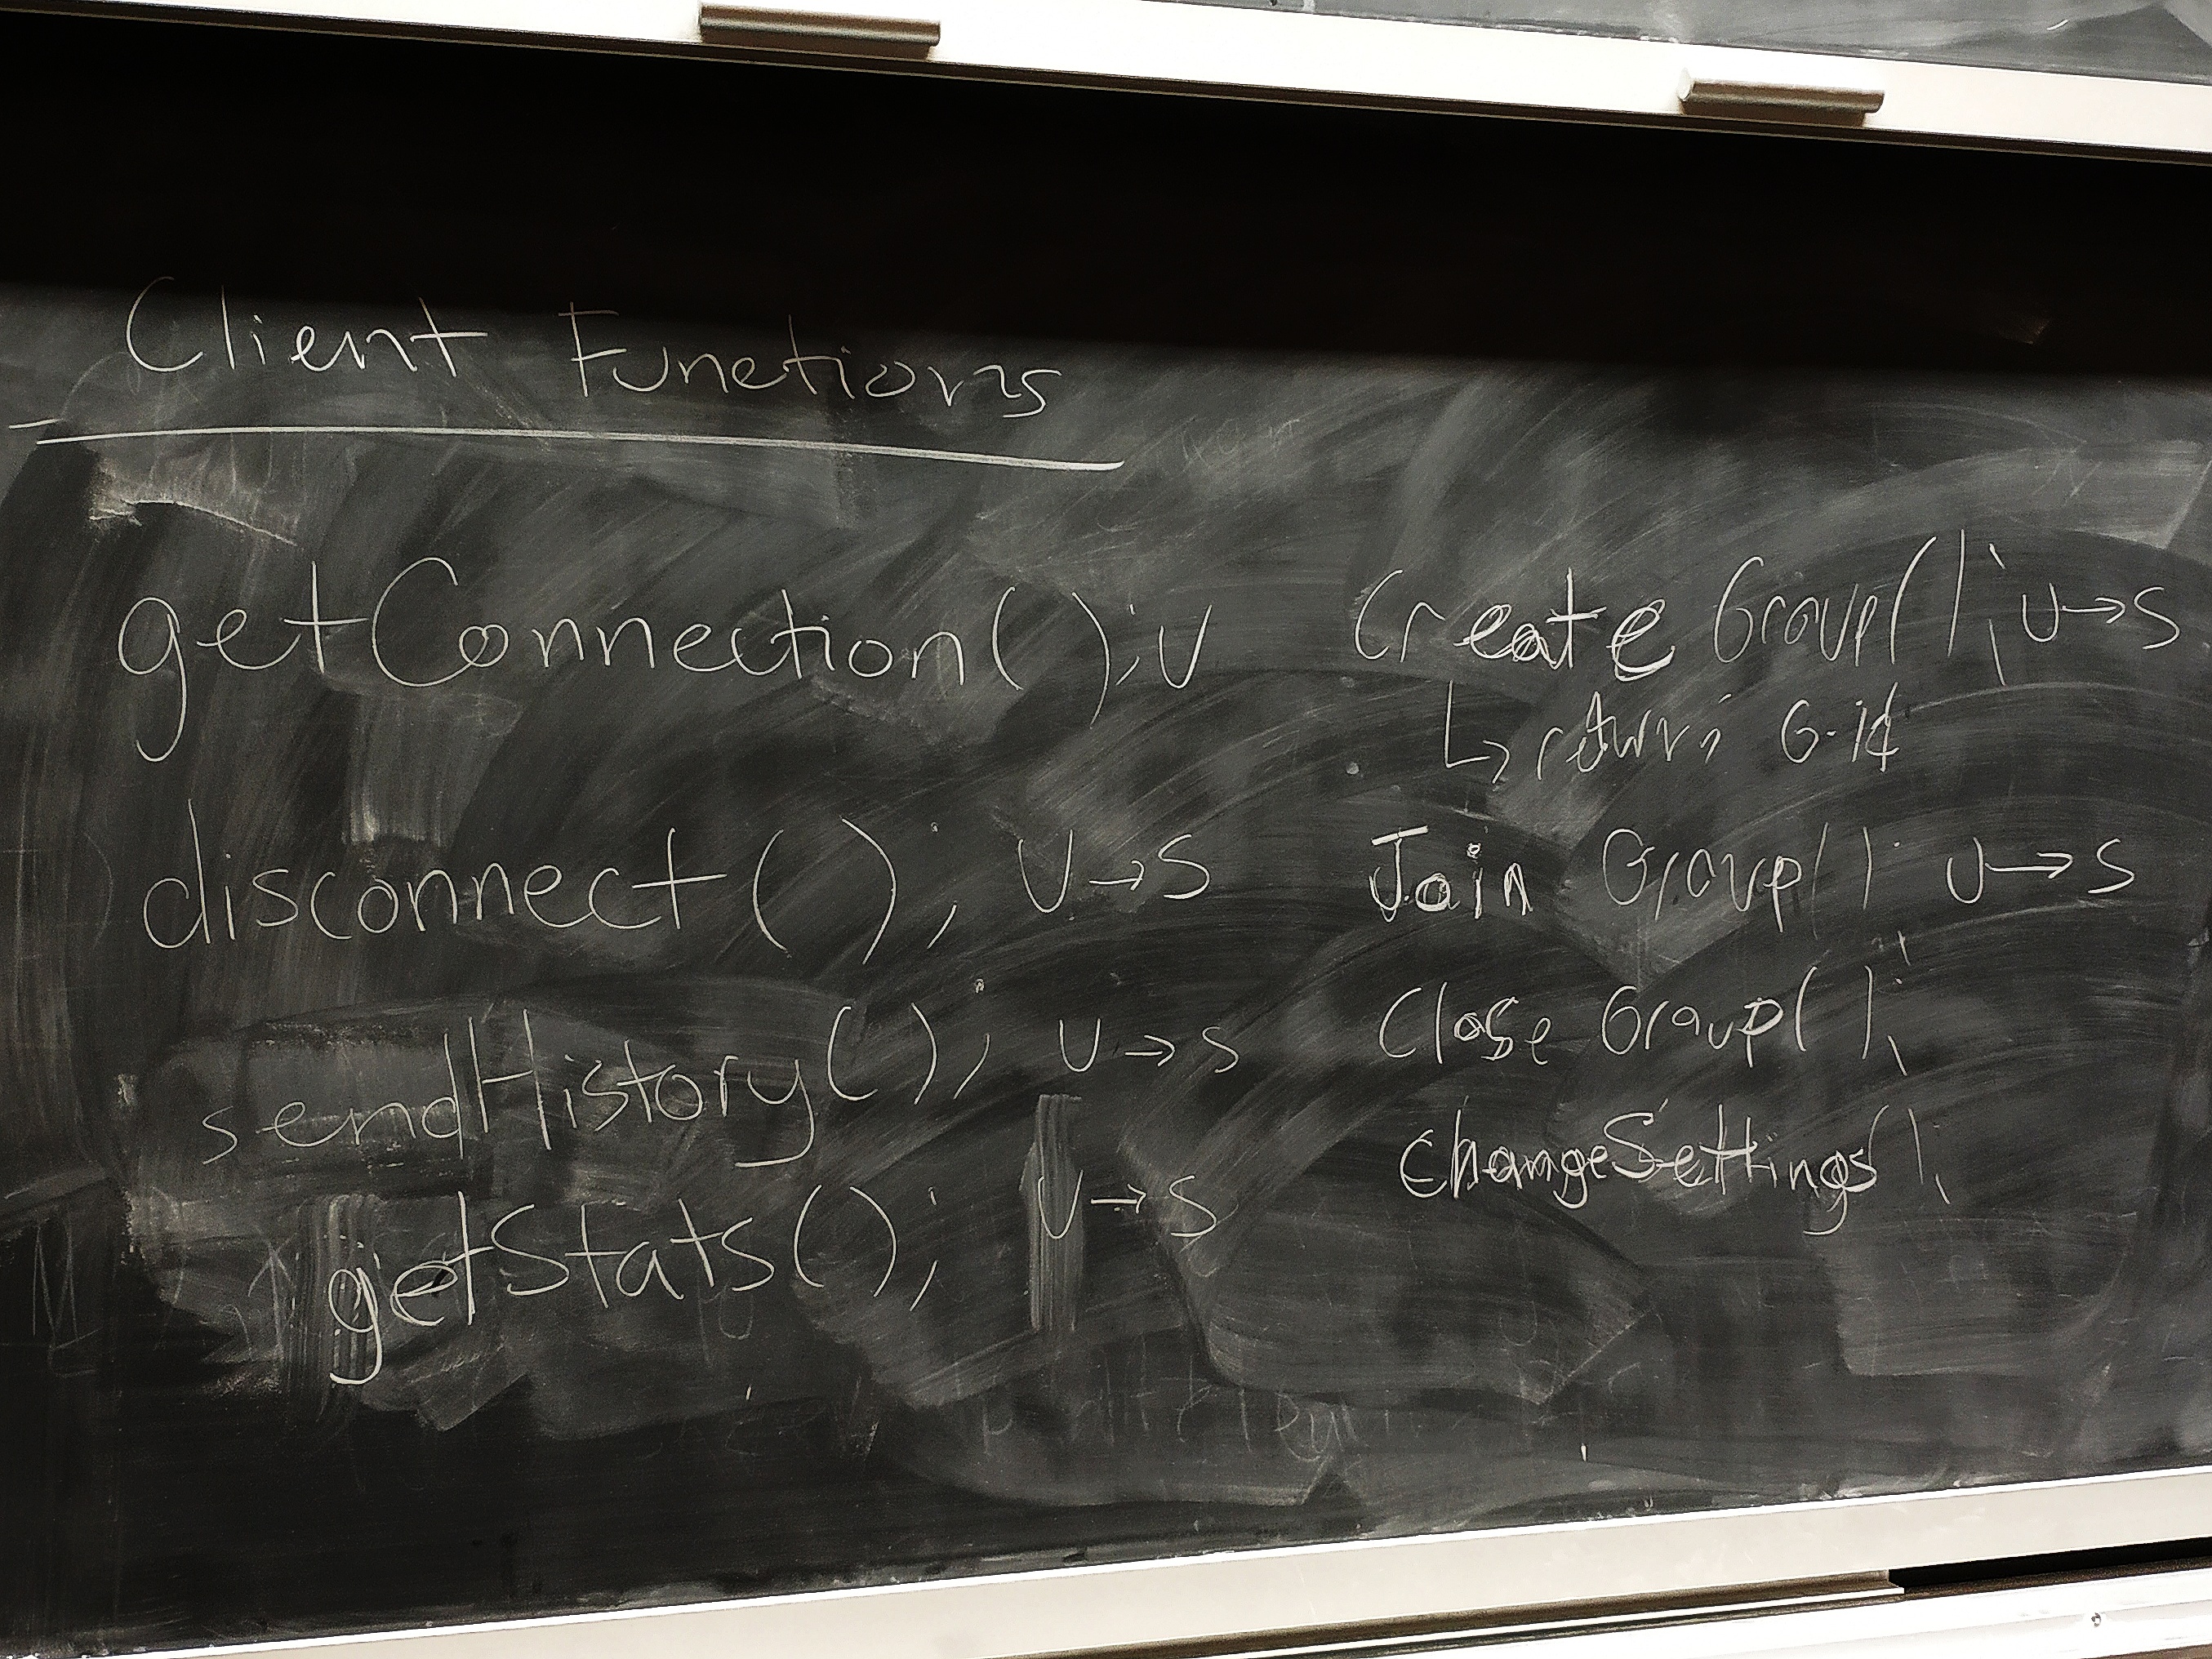 Client Functions
getConnection(); U
disconnect(); U→S
sendHistory(); U→S
getStats(); U→S
Create Group(); U→S
↳ return; G-id
Join Group(); U→S
Close Group();
changeSettings();